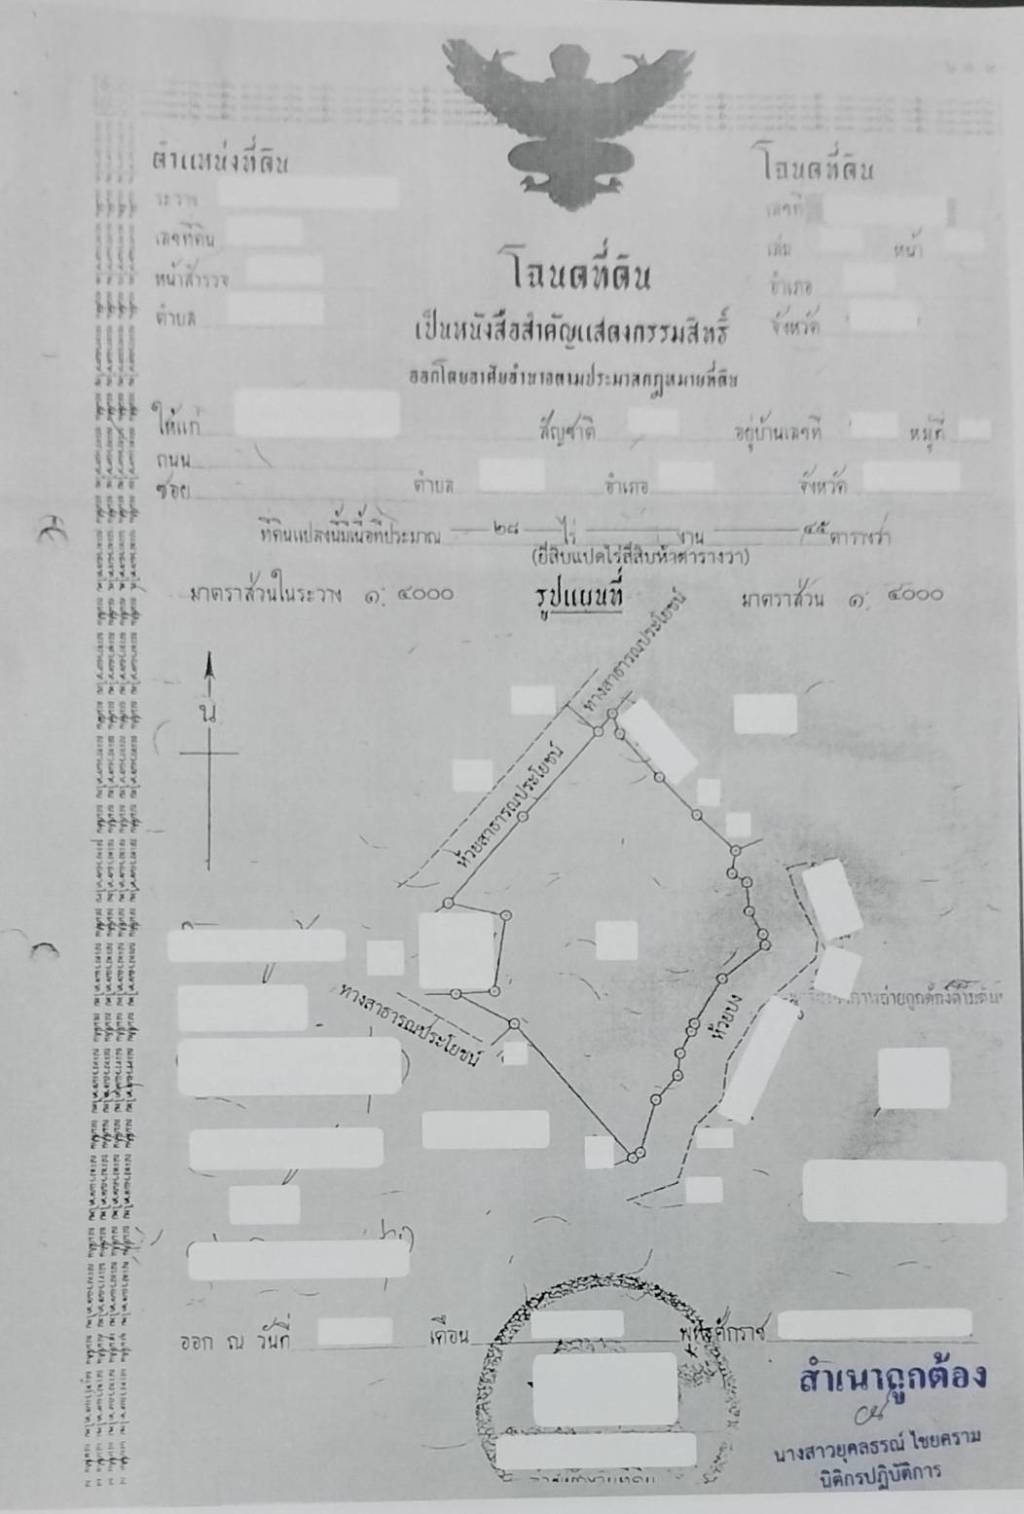 ตำแหน่งที่ดิน
ระวาง
เลขที่ดิน
หน้าสำรวจ
ตำบล
โฉนดที่ดิน
เลขที่
เล่ม หน้า
อำเภอ
จังหวัด
โฉนดที่ดิน
เป็นหนังสือสำคัญแสดงกรรมสิทธิ์
ออกโดยอาศัยอำนาจตามประมวลกฎหมายที่ดิน
ให้แก่ สัญชาติ อยู่บ้านเลขที่ หมู่ที่
ถนน
ซอย ตำบล อำเภอ จังหวัด
ที่ดินแปลงนี้มีเนื้อที่ประมาณ ๒๘ ไร่ งาน ๔๕ ตารางวา
(ยี่สิบแปดไร่สี่สิบห้าตารางวา)
มาตราส่วนในระวาง ๑: ๔๐๐๐ รูปแผนที่ มาตราส่วน ๑: ๔๐๐๐
น
ทางสาธารณประโยชน์
ห้วยสาธารณประโยชน์
ทางสาธารณประโยชน์
ห้วยบง
ออก ณ วันที่ เดือน พุทธศักราช
สำเนาถูกต้อง
นางสาวยุคลธรณ์ ไชยคราม
นิติกรปฏิบัติการ